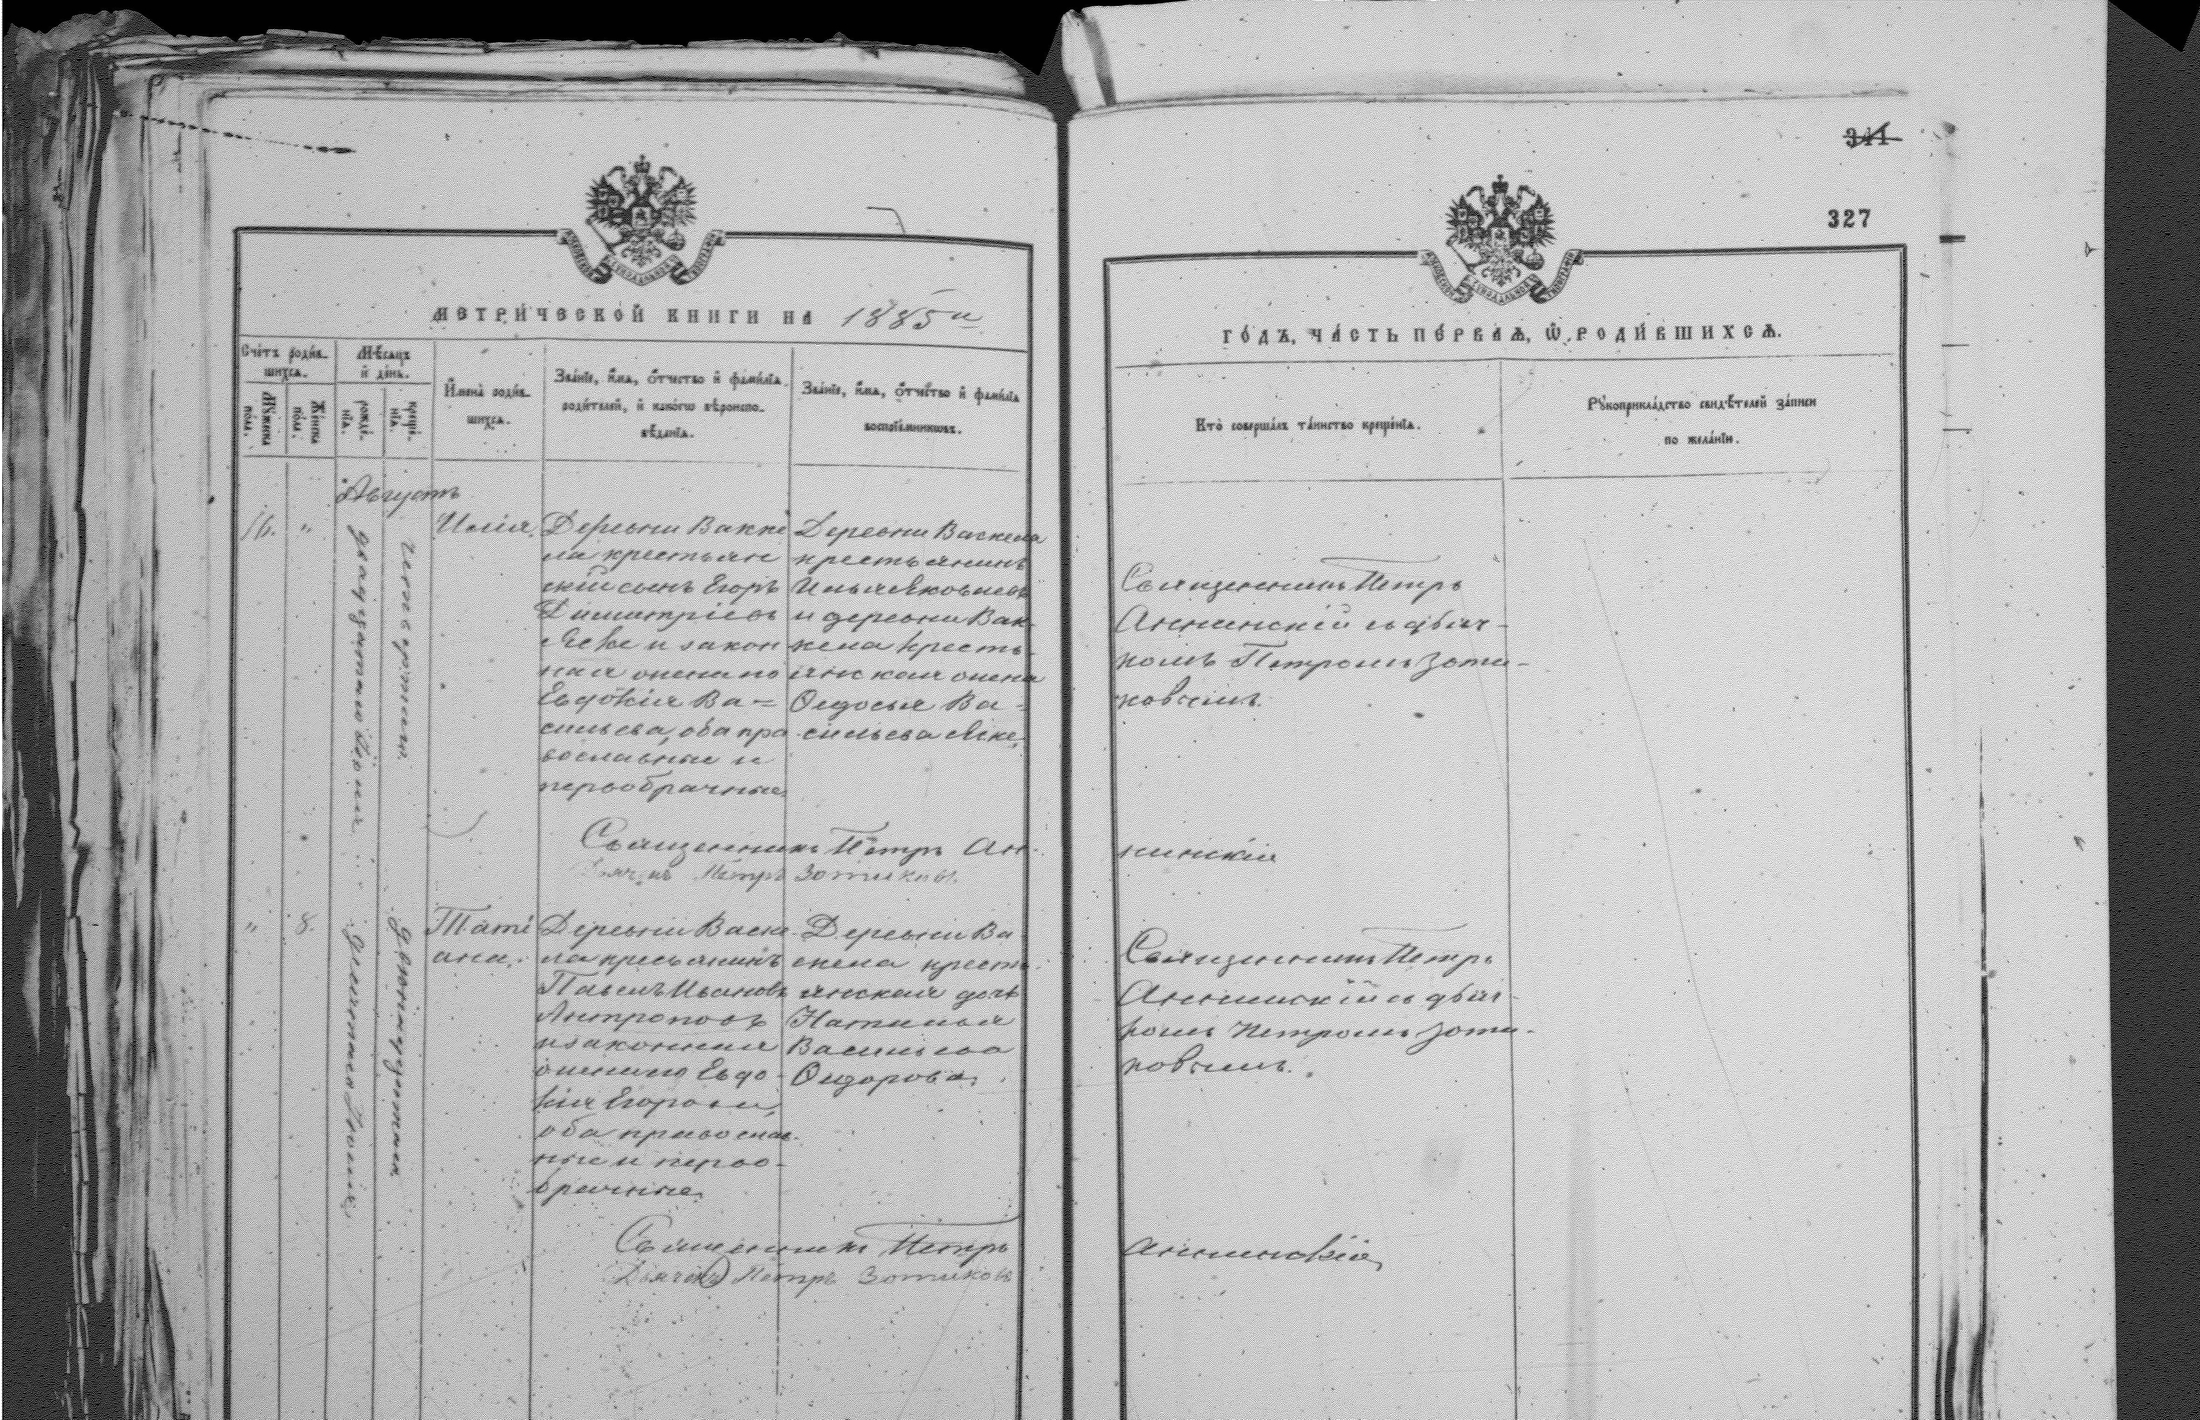 341
327
МЕТРИЧЕСКОЙ КНИГИ НА 1885й
ГОДЪ, ЧАСТЬ ПЕРВАЯ, Ѡ РОДИВШИХСЯ.
Счетъ родив-
шихся.
Мужеска
пола.
Женска
пола.
Мѣсяцъ
и день.
рожде-
нія.
креще-
нія.
Имена родив-
шихся.
Званіе, имя, отчество и фамилія
родителей, и какого вѣроиспо-
вѣданія.
Званіе, имя, отчество и фамилія
воспріемниковъ.
Кто совершалъ таинство крещенія.
Рукоприкладство свидѣтелей записи
по желанію.
Августъ
16.
"
четвертаго
Илія.
Деревни Вакке
ла крестьян
скій сынъ Егоръ
Димитріевъ
и закон
ная жена его
Евдокія Ва=
сильева, оба пра
вославные и
первобрачные.
Деревни Васкела
крестьянинъ
Илья Яковлевъ
и деревни Вак-
кела кресть-
янская жена
Ѳедосья Ва-
сильева
Священникъ Петръ
Аннинскій съ дьяч-
комъ Петромъ Зоти-
ковымъ.
Священникъ Петръ Ан-
нинскій
Дьячекъ Петръ Зотиковъ.
"
8.
Таті
ана.
Деревни Васке-
ла кресьянинъ
Павелъ Ивановъ
Антроповъ
и законная
жена его Евдо-
кія Егорова,
оба православ-
ные и перво-
брачные.
Деревни Ва
скела кресть-
янская дочь
Наталья
Васильева
Ѳедорова.
Священникъ Петръ
Аннинскій съ дьяч-
комъ Петромъ Зоти-
ковымъ.
Священникъ Петръ
Аннинскій
Дьячекъ Петръ Зотиковъ